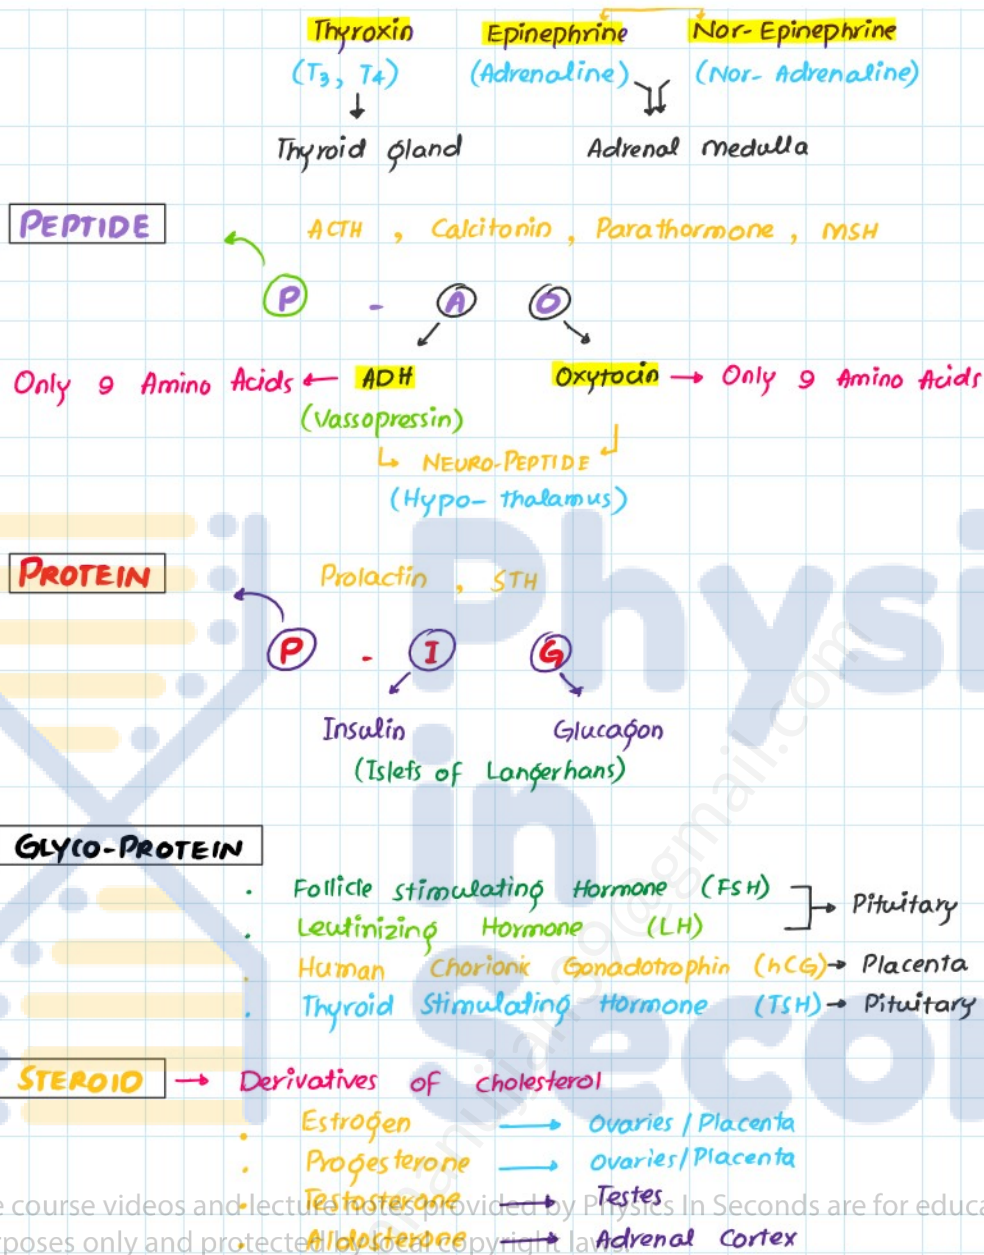 Thyroxin Epinephrine Nor-Epinephrine
(T3, T4) (Adrenaline) (Nor- Adrenaline)
Thyroid gland Adrenal medulla
PEPTIDE ACTH , Calcitonin , Parathormone , MSH
P - A O
Only 9 Amino Acids ← ADH Oxytocin → Only 9 Amino Acids
(Vassopressin)
NEURO-PEPTIDE
(Hypo- thalamus)
PROTEIN Prolactin , STH
P - I G
Insulin Glucagon
(Islets of Langerhans)
GLYCO-PROTEIN
. Follicle stimulating Hormone (FSH)
→ Pituitary
. Leutinizing Hormone (LH)
. Human Chorionic Gonadotrophin (hCG) → Placenta
. Thyroid Stimulating Hormone (TSH) → Pituitary
STEROID → Derivatives of cholesterol
. Estrogen → Ovaries / Placenta
. Progesterone → Ovaries / Placenta
. Testosterone → Testes
. Aldosterone → Adrenal Cortex
Physi
in
Secon
e course videos and lecture notes provided by Physics In Seconds are for educa
rposes only and protected by local copyright laws.